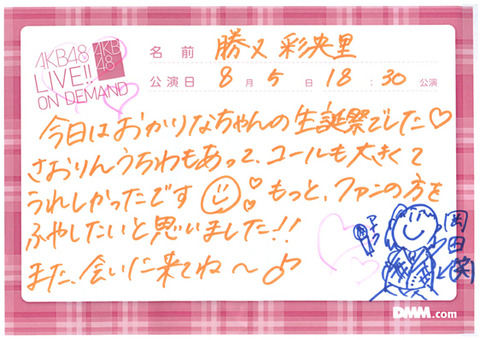 AKB48
LIVE!!
ON DEMAND
AKB
48
名前 勝又 彩央里
公演日 8月5日 18:30公演
今日はおかりなちゃんの生誕祭でした♡
さおりんうちわもあって、コールも大きくて
うれしかったです
もっと、ファンの方を
ふやしたいと思いました!!
また、会いに来てね〜♪
岡田(笑)
DMM.com